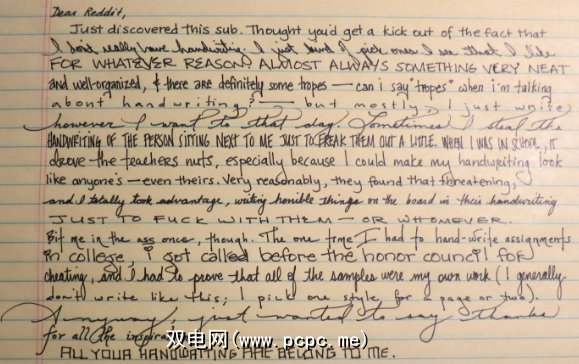 Dear Reddit,
Just discovered this sub. Thought you'd get a kick out of the fact that
I don't really have handwriting. I just kind of pick ones I see that I like
FOR WHATEVER REASON, ALMOST ALWAYS SOMETHING VERY NEAT
and well-organized, & there are definitely some tropes — can i say "tropes" when i'm talking
about handwriting? — but mostly, I just write
however I want to that day. Sometimes I steal the
HANDWRITING OF THE PERSON SITTING NEXT TO ME JUST TO FREAK THEM OUT A LITTLE. WHEN I WAS IN SCHOOL, IT
drove the teachers nuts, especially because I could make my handwriting look
like anyone's — even theirs. Very reasonably, they found that threatening,
and I totally took advantage, writing horrible things on the board in their handwriting
JUST TO FUCK WITH THEM — OR WHOMEVER.
Bit me in the ass once, though. The one time I had to hand-write assignments
in college, i got called before the honor council for
cheating, and I had to prove that all of the samples were my own work (I generally
don't write like this; I pick one style for a page or two).
Anyway, just wanted to say thanks
for all the
双电网(www.pcpc.me)
ALL YOUR HANDWRITING ARE BELONG TO ME.